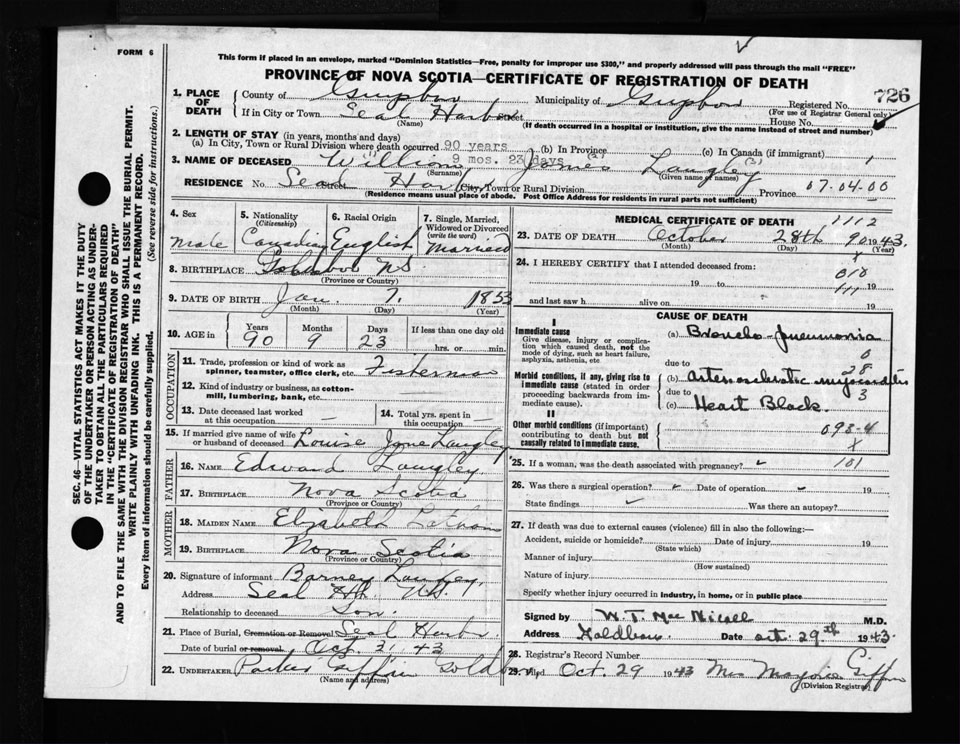 FORM 6
This form if placed in an envelope, marked "Dominion Statistics—Free, penalty for improper use $300," and properly addressed will pass through the mail "FREE"
PROVINCE OF NOVA SCOTIA—CERTIFICATE OF REGISTRATION OF DEATH
SEC. 46—VITAL STATISTICS ACT MAKES IT THE DUTY
OF THE UNDERTAKER OR PERSON ACTING AS UNDER-
TAKER TO OBTAIN ALL THE PARTICULARS REQUIRED
IN THE "CERTIFICATE OF REGISTRATION OF DEATH"
AND TO FILE THE SAME WITH THE DIVISION REGISTRAR WHO SHALL ISSUE THE BURIAL PERMIT.
WRITE PLAINLY WITH UNFADING INK. THIS IS A PERMANENT RECORD.
Every item of information should be carefully supplied. (See reverse side for instructions.)
1. PLACE OF DEATH
County of Municipality of Registered No. 726
(For use of Registrar General only)
If in City or Town Seal Harbor Street House No.
(Name) (If death occurred in a hospital or institution, give the name instead of street and number)
2. LENGTH OF STAY (in years, months and days)
(a) In City, Town or Rural Division where death occurred 90 years 9 mos. 23 days (b) In Province (c) In Canada (if immigrant)
3. NAME OF DECEASED William James Langley
(Surname) (Given name or names)
RESIDENCE No. Street Seal Harbor City, Town or Rural Division Province 07-04-00
(Residence means usual place of abode. Post Office Address for residents in rural parts not sufficient)
4. Sex Male
5. Nationality (Citizenship) Canadian
6. Racial Origin English
7. Single, Married, Widowed or Divorced (write the word) Married
8. BIRTHPLACE NS
(Province or Country)
9. DATE OF BIRTH Jan. 7. 1853
(Month) (Day) (Year)
10. AGE in Years 90 Months 9 Days 23 If less than one day old hrs. or min.
OCCUPATION
11. Trade, profession or kind of work as spinner, teamster, office clerk, etc. Fisherman
12. Kind of industry or business, as cotton-mill, lumbering, bank, etc.
13. Date deceased last worked at this occupation —
14. Total yrs. spent in this occupation —
15. If married give name of wife or husband of deceased Louise Jane Langley
FATHER
16. NAME Edward Langley
17. BIRTHPLACE Nova Scotia
(Province or Country)
MOTHER
18. MAIDEN NAME Elizabeth
19. BIRTHPLACE Nova Scotia
(Province or Country)
20. Signature of informant Barney Langley.
Address Seal Hb. NS.
Relationship to deceased Son.
21. Place of Burial, Cremation or Removal Seal Harbr
Date of burial or removal Oct 31 43
22. UNDERTAKER Parker Giffin
(Name and address)
MEDICAL CERTIFICATE OF DEATH 1112
23. DATE OF DEATH October 28th 90 1943.
(Month) (Day) (Year)
24. I HEREBY CERTIFY that I attended deceased from:
19 to 19
and last saw h alive on 19
CAUSE OF DEATH
I
Immediate cause
Give disease, injury or complication which caused death, not the mode of dying, such as heart failure, asphyxia, asthenia, etc.
(a) Broncho-Pneumonia
0
due to 28
Morbid conditions, if any, giving rise to immediate cause (stated in order proceeding backwards from immediate cause).
(b) Arteriosclerotic myocarditis
due to 3
(c) Heart Block.
II
Other morbid conditions (if important) contributing to death but not causally related to immediate cause.
093-4
25. If a woman, was the death associated with pregnancy? 101
26. Was there a surgical operation? Date of operation 19
State findings Was there an autopsy?
27. If death was due to external causes (violence) fill in also the following:—
Accident, suicide or homicide? Date of injury 19
(State which)
Manner of injury
(How sustained)
Nature of injury
Specify whether injury occurred in industry, in home, or in public place
Signed by M.D.
Address Date Oct. 29th 1943.
28. Registrar's Record Number
29. Filed Oct. 29 1943 Mrs Marjorie Giffin
(Division Registrar)